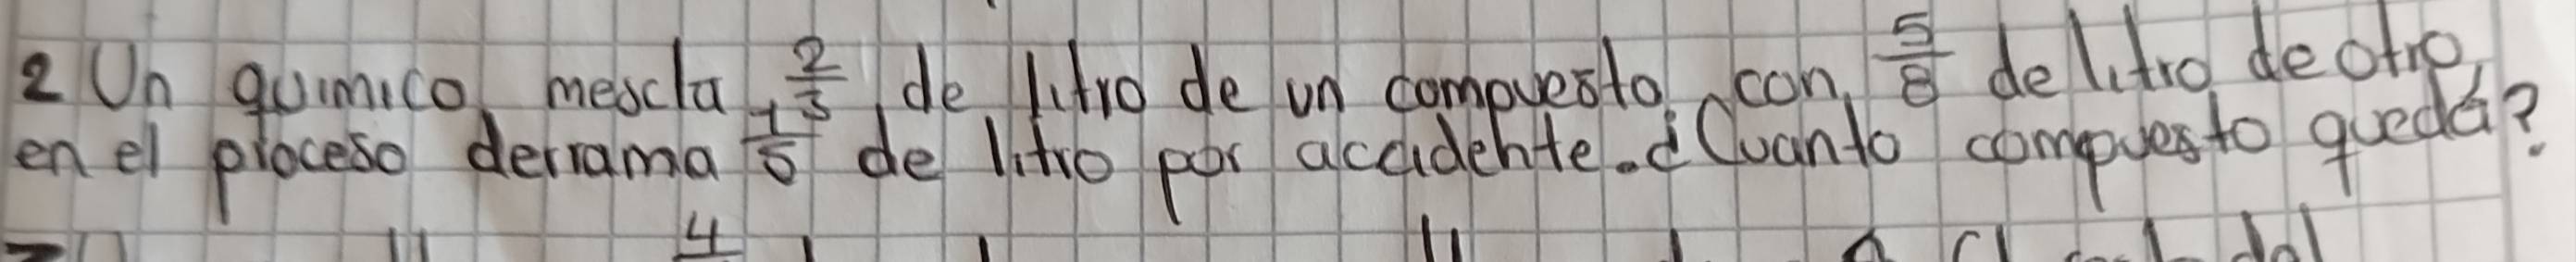 2 Un quimico mescla 2/3 de litro de un compuesto con 5/8 de litro de otro,
en el proceso derrama 1/5 de litro por accidente. ¿Cuanto compuesto queda?
4